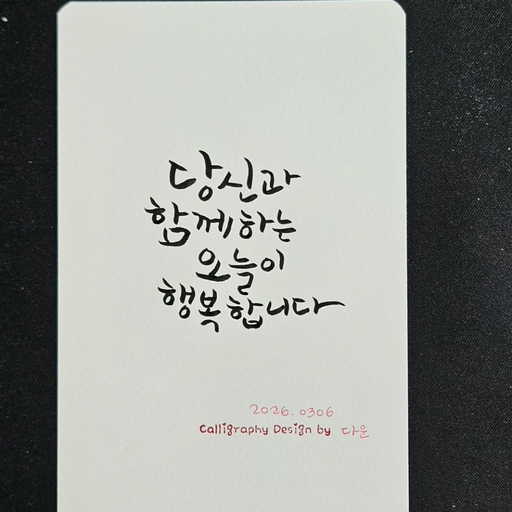 당신과
함께하는
오늘이
행복합니다
2026.0306
Calligraphy Design by 다운